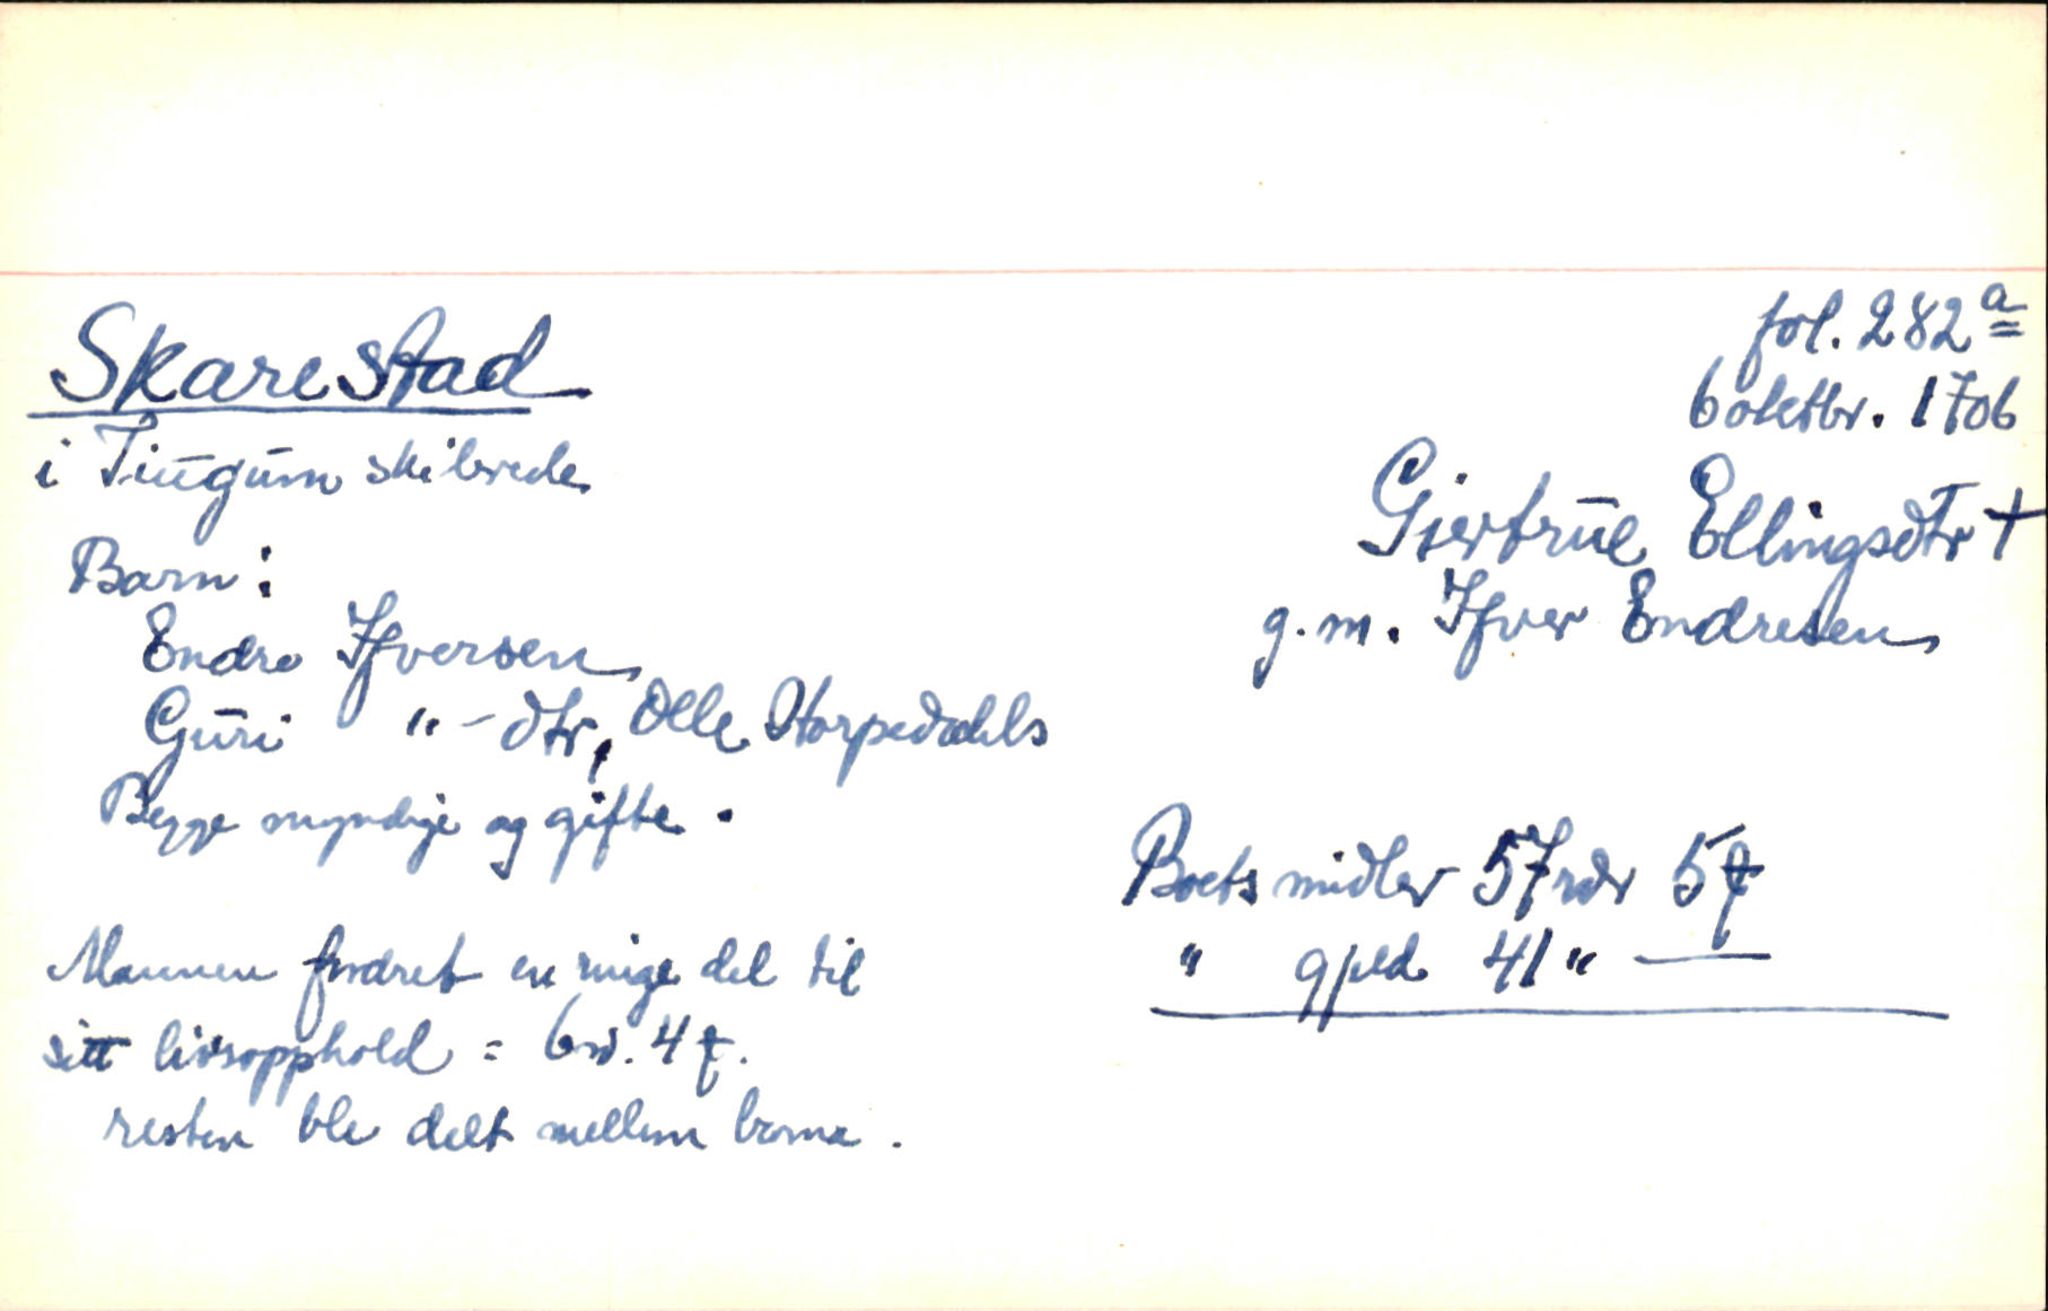 fol. 282a
6 oktbr. 1706
Skarestad
i Tiugum skibrede
Gjertrue Ellingsdtr †
g.m. Ifver Endresen
Barn:
Endre Ifversen
Guri "-dtr, Olle Storpedahls
Begge myndige og gifte.
Boets midler 57 rdr 5
" gjeld 41 " —
Mannen fordret en ringe del til
sitt livsopphold = 6 rd. 4
resten ble delt mellem barna.